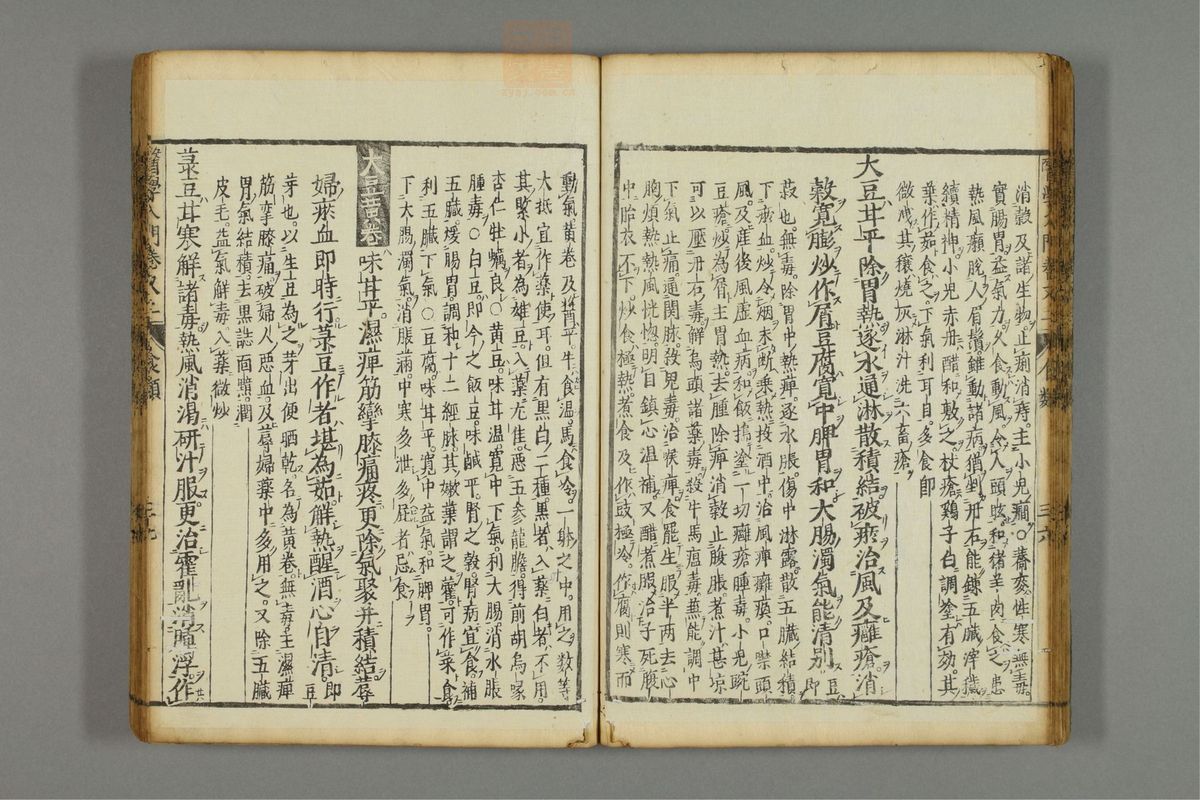 消穀及諸生物止痢消痔主小兒癇〇蕎麥性寒無毒
實腸胃益氣力久食動風令人頭眩和猪羊肉食之患
熱風癩脫人眉鬚雖動諸病猶剉丹石能鍊五臟滓穢
續精神小兒赤丹醋和敷之杖瘡鷄子白調塗有功其
葉作茹食之下氣利耳目多食即
微洩其穰燒灰淋汁洗六畜瘡
大豆甘平除胃熱逐水通淋散積結破瘀治風及癰瘡消
穀寬膨炒作屑豆腐寬中脾胃和大腸濁氣能清別即豆
菽也無毒除胃中熱痺逐水脹傷中淋露散五臟結積
下瘀血炒令烟未斷乘熱投酒中治風痺癱瘓口噤頭
風及產後風虛血病和飯搗塗一切癰瘡腫毒小兒豌
豆瘡炒為屑主胃熱去腫除痺消穀止腹脹煮汁甚凉
可以壓丹石毒解烏頭諸藥毒殺牛馬瘟毒無能調中
下氣止痛通關脉發兒毒治喉痺食罷生服半兩去心
胸煩熱熱風恍惚明目鎮心温補又醋煮服治子死腹
中胎衣不下炒食極熱煮食及作豉極冷作腐則寒而
動氣黄卷及醬平牛食温馬食冷一躰之中用之數等
大抵宜作藥使耳但有黑白二種黑者入藥白者不用
其緊小者為雄豆入藥尤佳惡五參龍膽得前胡烏喙
杏仁牡蠣良〇黄豆味甘温寬中下氣利大腸消水脹
腫毒〇白豆即今之飯豆味鹹平腎之穀腎病宜食補
五臟煖腸胃調和十二經脉其嫩葉謂之藿可作菜食
利五臟下氣〇豆腐味甘平寬中益氣和脾胃
下大腸濁氣消脹滿中寒多泄多屁者忌食
大豆黄卷味甘平濕痺筋攣膝痛疼更除氣聚并積結蓐
婦瘀血即時行菉豆作者堪為茹解熱醒酒心自清即豆
芽也以生豆為之芽出便晒乾名為黄卷無毒主濕痺
筋攣膝痛破婦人惡血及蓐婦藥中多用之又除五臟
胃氣結積去黑䵟面䵳潤
皮毛益氣解毒入藥微炒
菉豆甘寒解諸毒熱風消渴研汁服更治霍亂消腫浮作
醫學入門卷之二
食類
三六